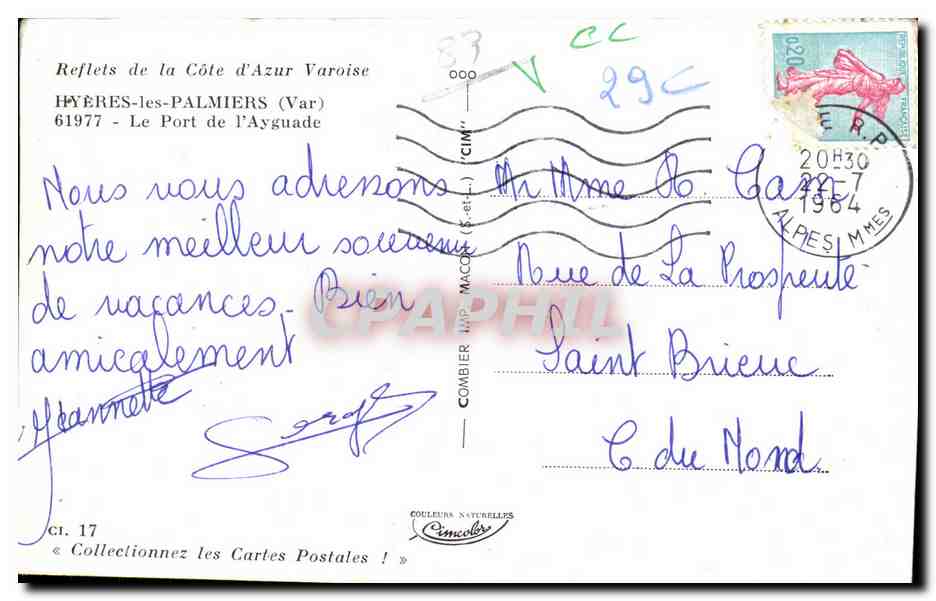 Reflets de la Côte d'Azur Varoise
HYÈRES-les-PALMIERS (Var)
61977 - Le Port de l'Ayguade
Nous vous adressons
notre meilleur souvenir
de vacances. Bien
amicalement
Jeannette
Serge
CI. 17
« Collectionnez les Cartes Postales ! »
COMBIER IMP. MACON (S.-et-L.) "CIM"
COULEURS NATURELLES
Cimcolor
83
CC
29C
0,20
REPUBLIQUE FRANÇAISE
R.P.
20H30
22-7
1964
ALPES MMES
Mr Mme
Rue de La Prosperité
Saint Brieuc
C du Nord.
CPAPHIL